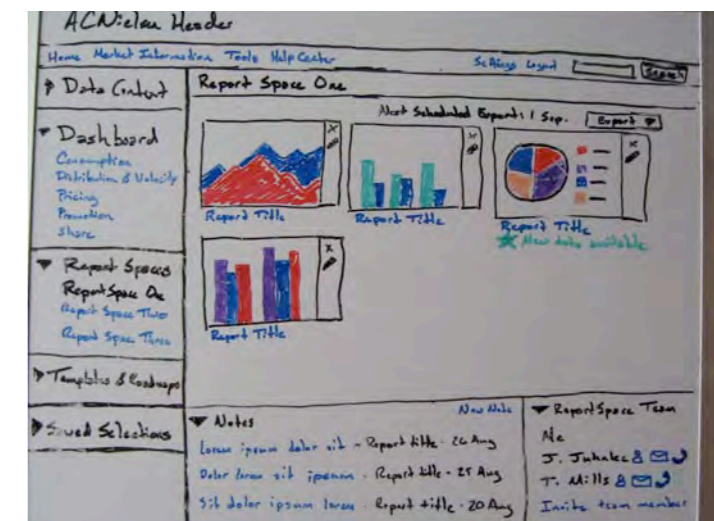 ACNielsen Header
Home Market Information Tools Help Center Settings Logout Search
Data Context
Dashboard
Consumption
Distribution & Velocity
Pricing
Promotion
Share
Report Spaces
Report Space One
Report Space Two
Report Space Three
Templates & Roadmaps
Saved Selections
Report Space One
Next Scheduled Export: 1 Sep. Export
Report Title
Report Title
Report Title
New data available
Report Title
Notes
New Note
Lorem ipsum dolor sit - Report title - 26 Aug
Dolor lorem sit ipsum - Report title - 25 Aug
Sit dolor ipsum lorem - Report title - 20 Aug
Report Space Team
Me
J. Juhalec
T. Mills
Invite team member